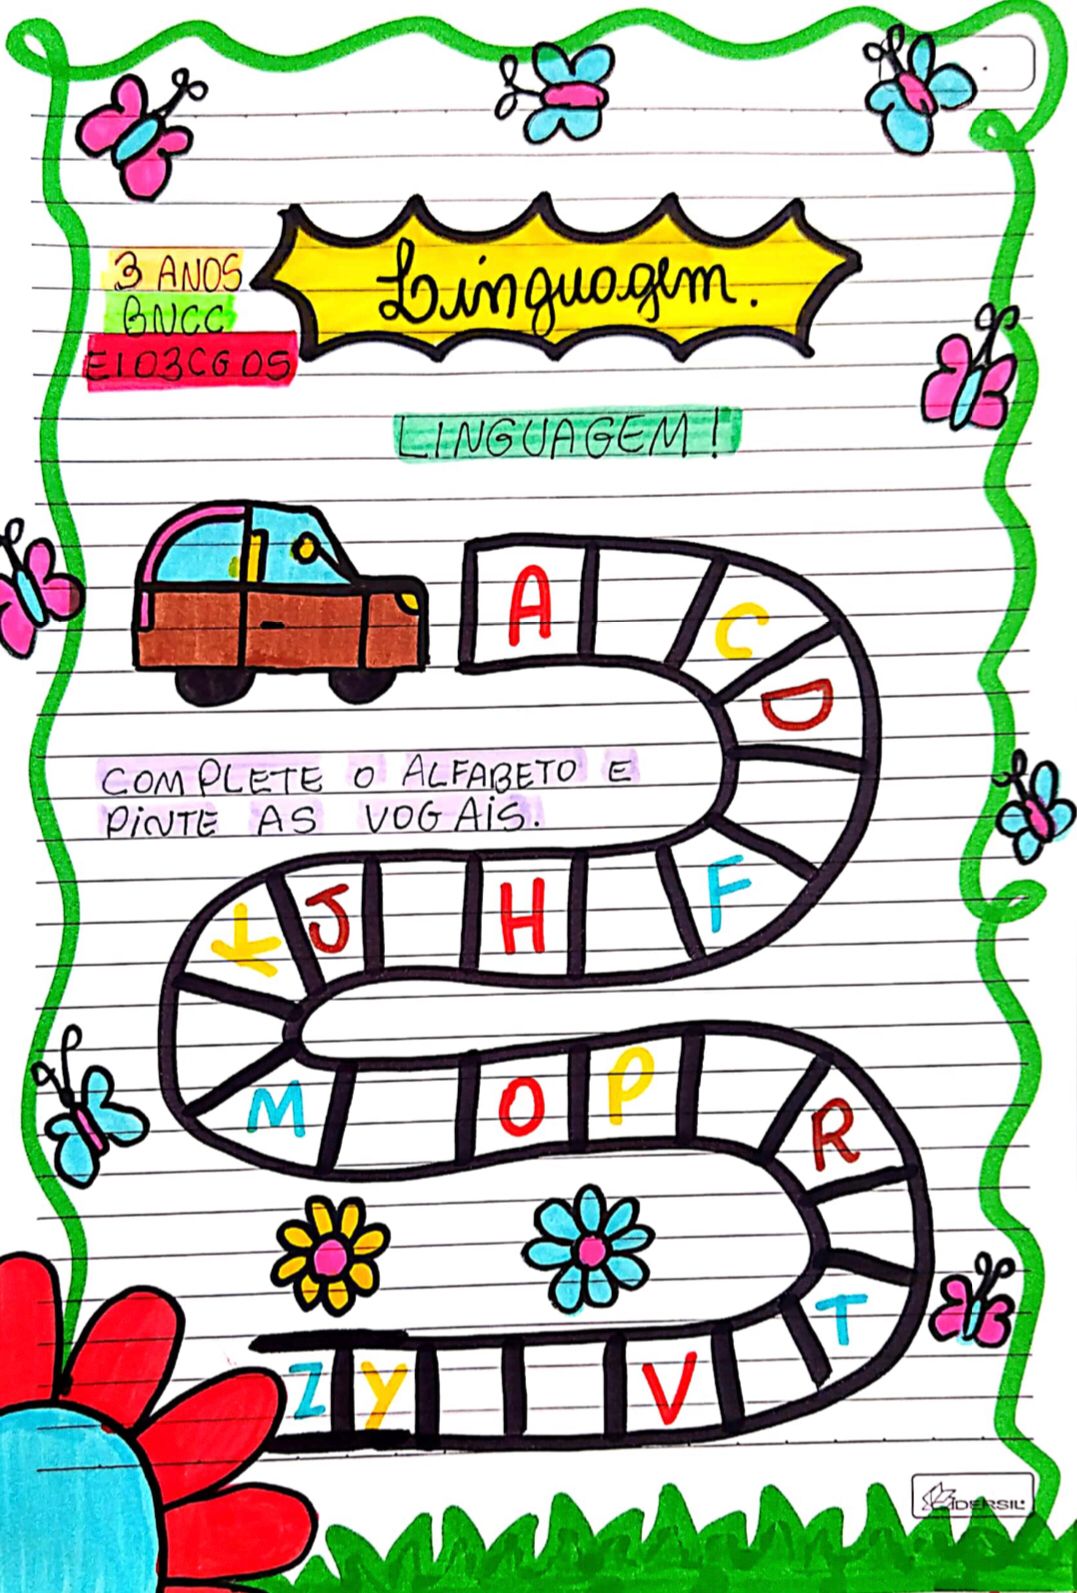 Linguagem.
3 ANOS
BNCC
EI03CG05
LINGUAGEM!
A C D
COMPLETE O ALFABETO E
PINTE AS VOGAIS.
K J H F
M O P R
T
Z Y V